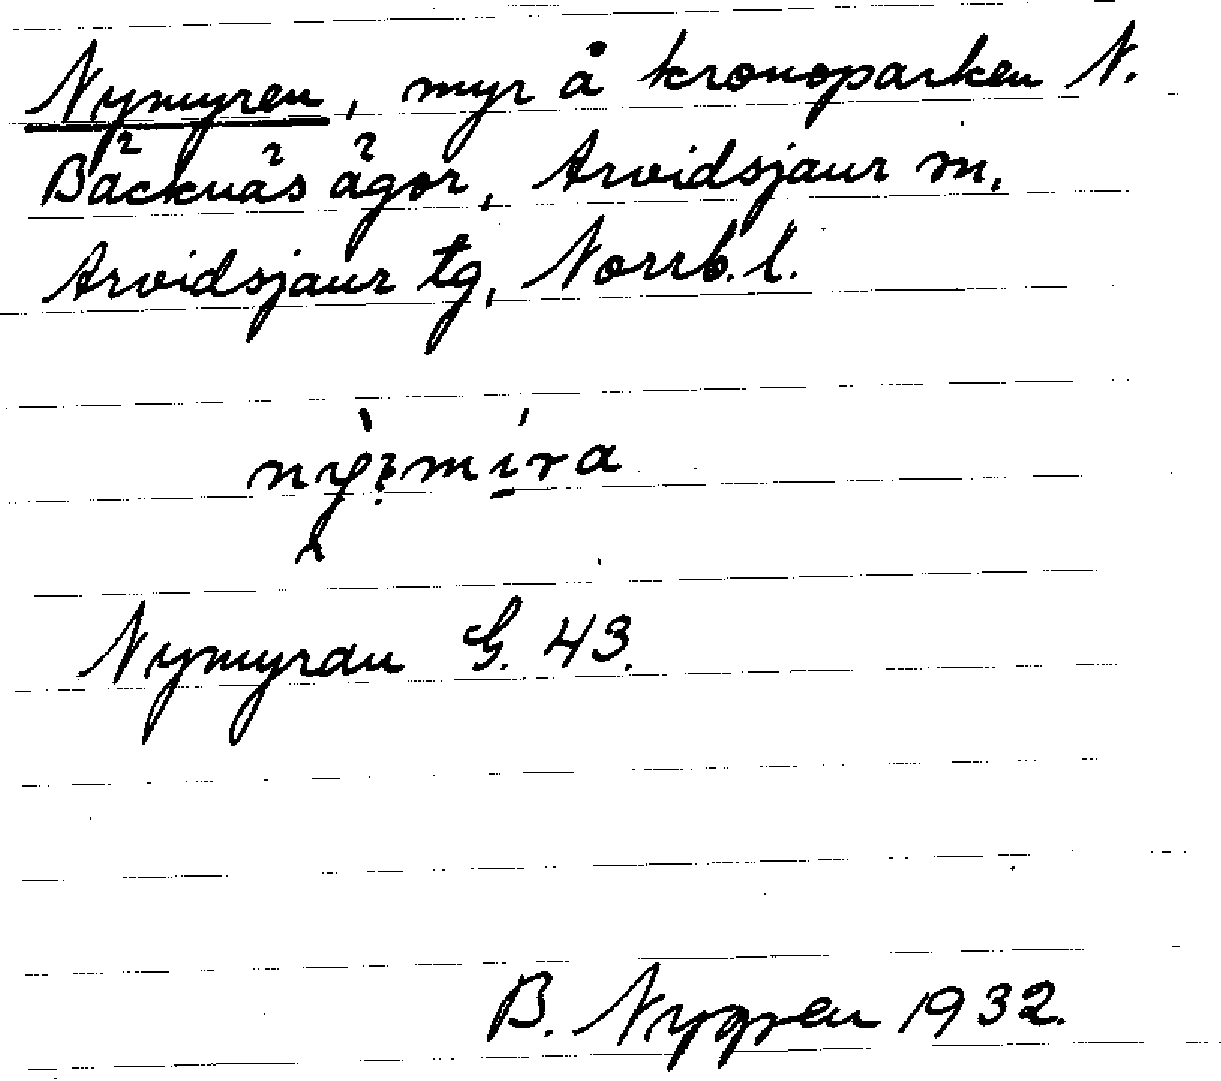 Nymyren, myr å kronoparken N.
Bäcknäs ägor, Arvidsjaur sn,
Arvidsjaur tg, Norrb. l.
Nymyran G. 43.
B. Nygren 1932.